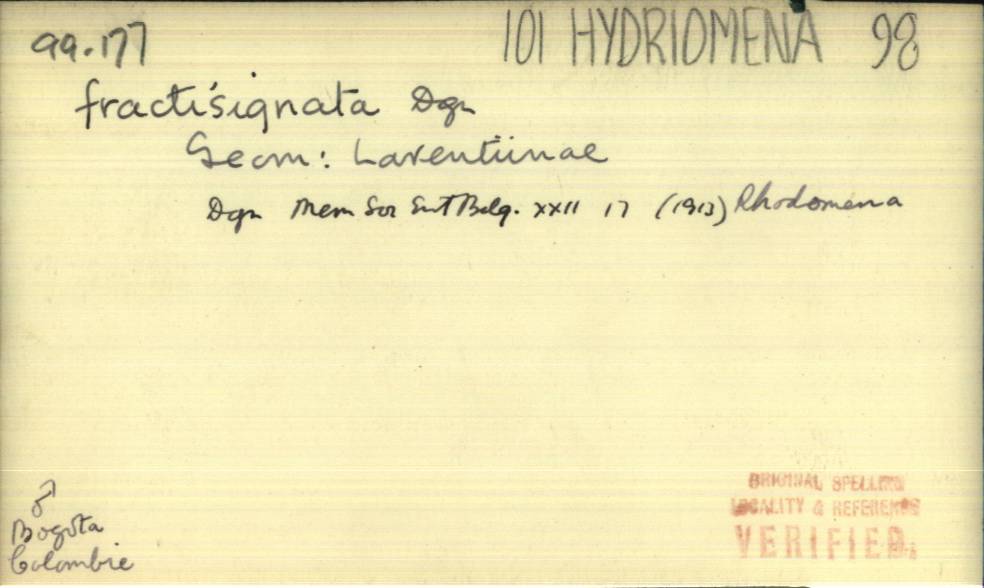 99.177 101 HYDRIOMENA 98
fractisignata Dgn
Geom: Larentiinae
Dgn Mem Soc Ent Belg. XXII 17 (1913) Rhodomena
♂
Bogota
Colombie
ORIGINAL SPELLING
LOCALITY & REFERENCE
VERIFIED.